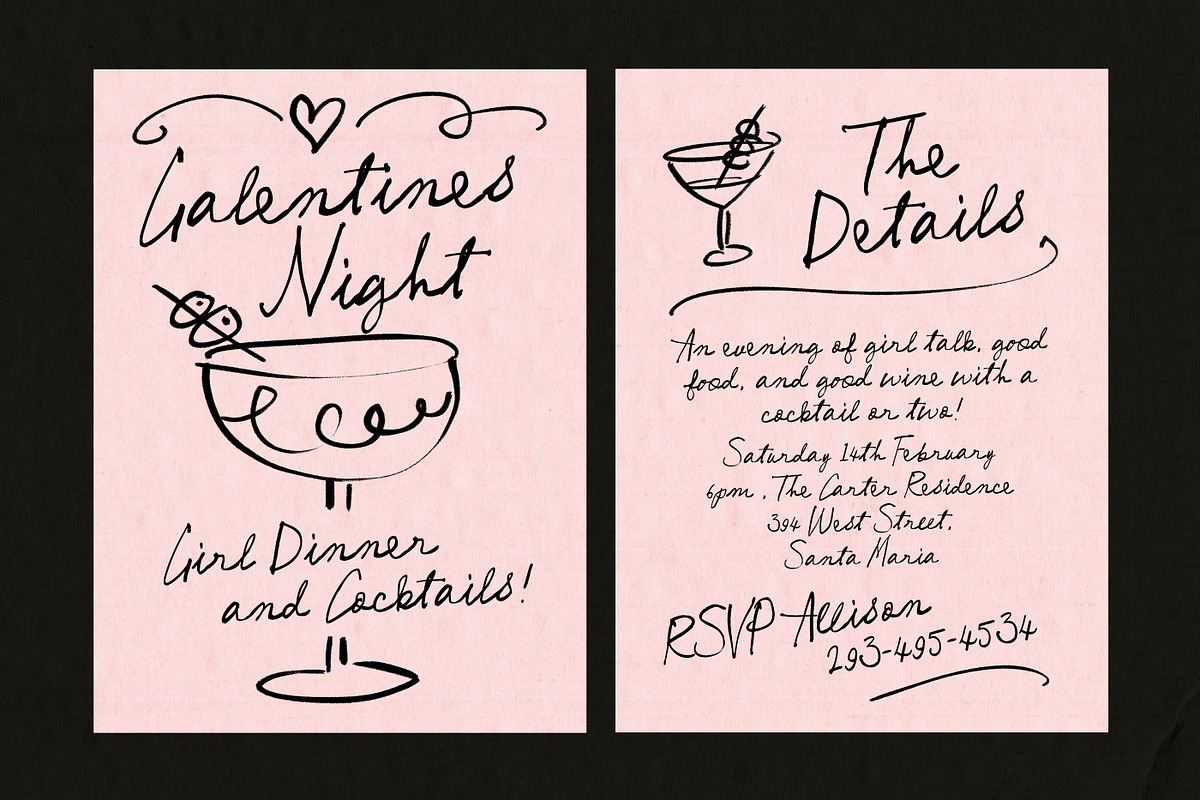 Galentines
Night
Girl Dinner
and Cocktails!
The
Details
An evening of girl talk, good
food, and good wine with a
cocktail or two!
Saturday 14th February
6pm, The Carter Residence
394 West Street,
Santa Maria
RSVP Allison
293-495-4534